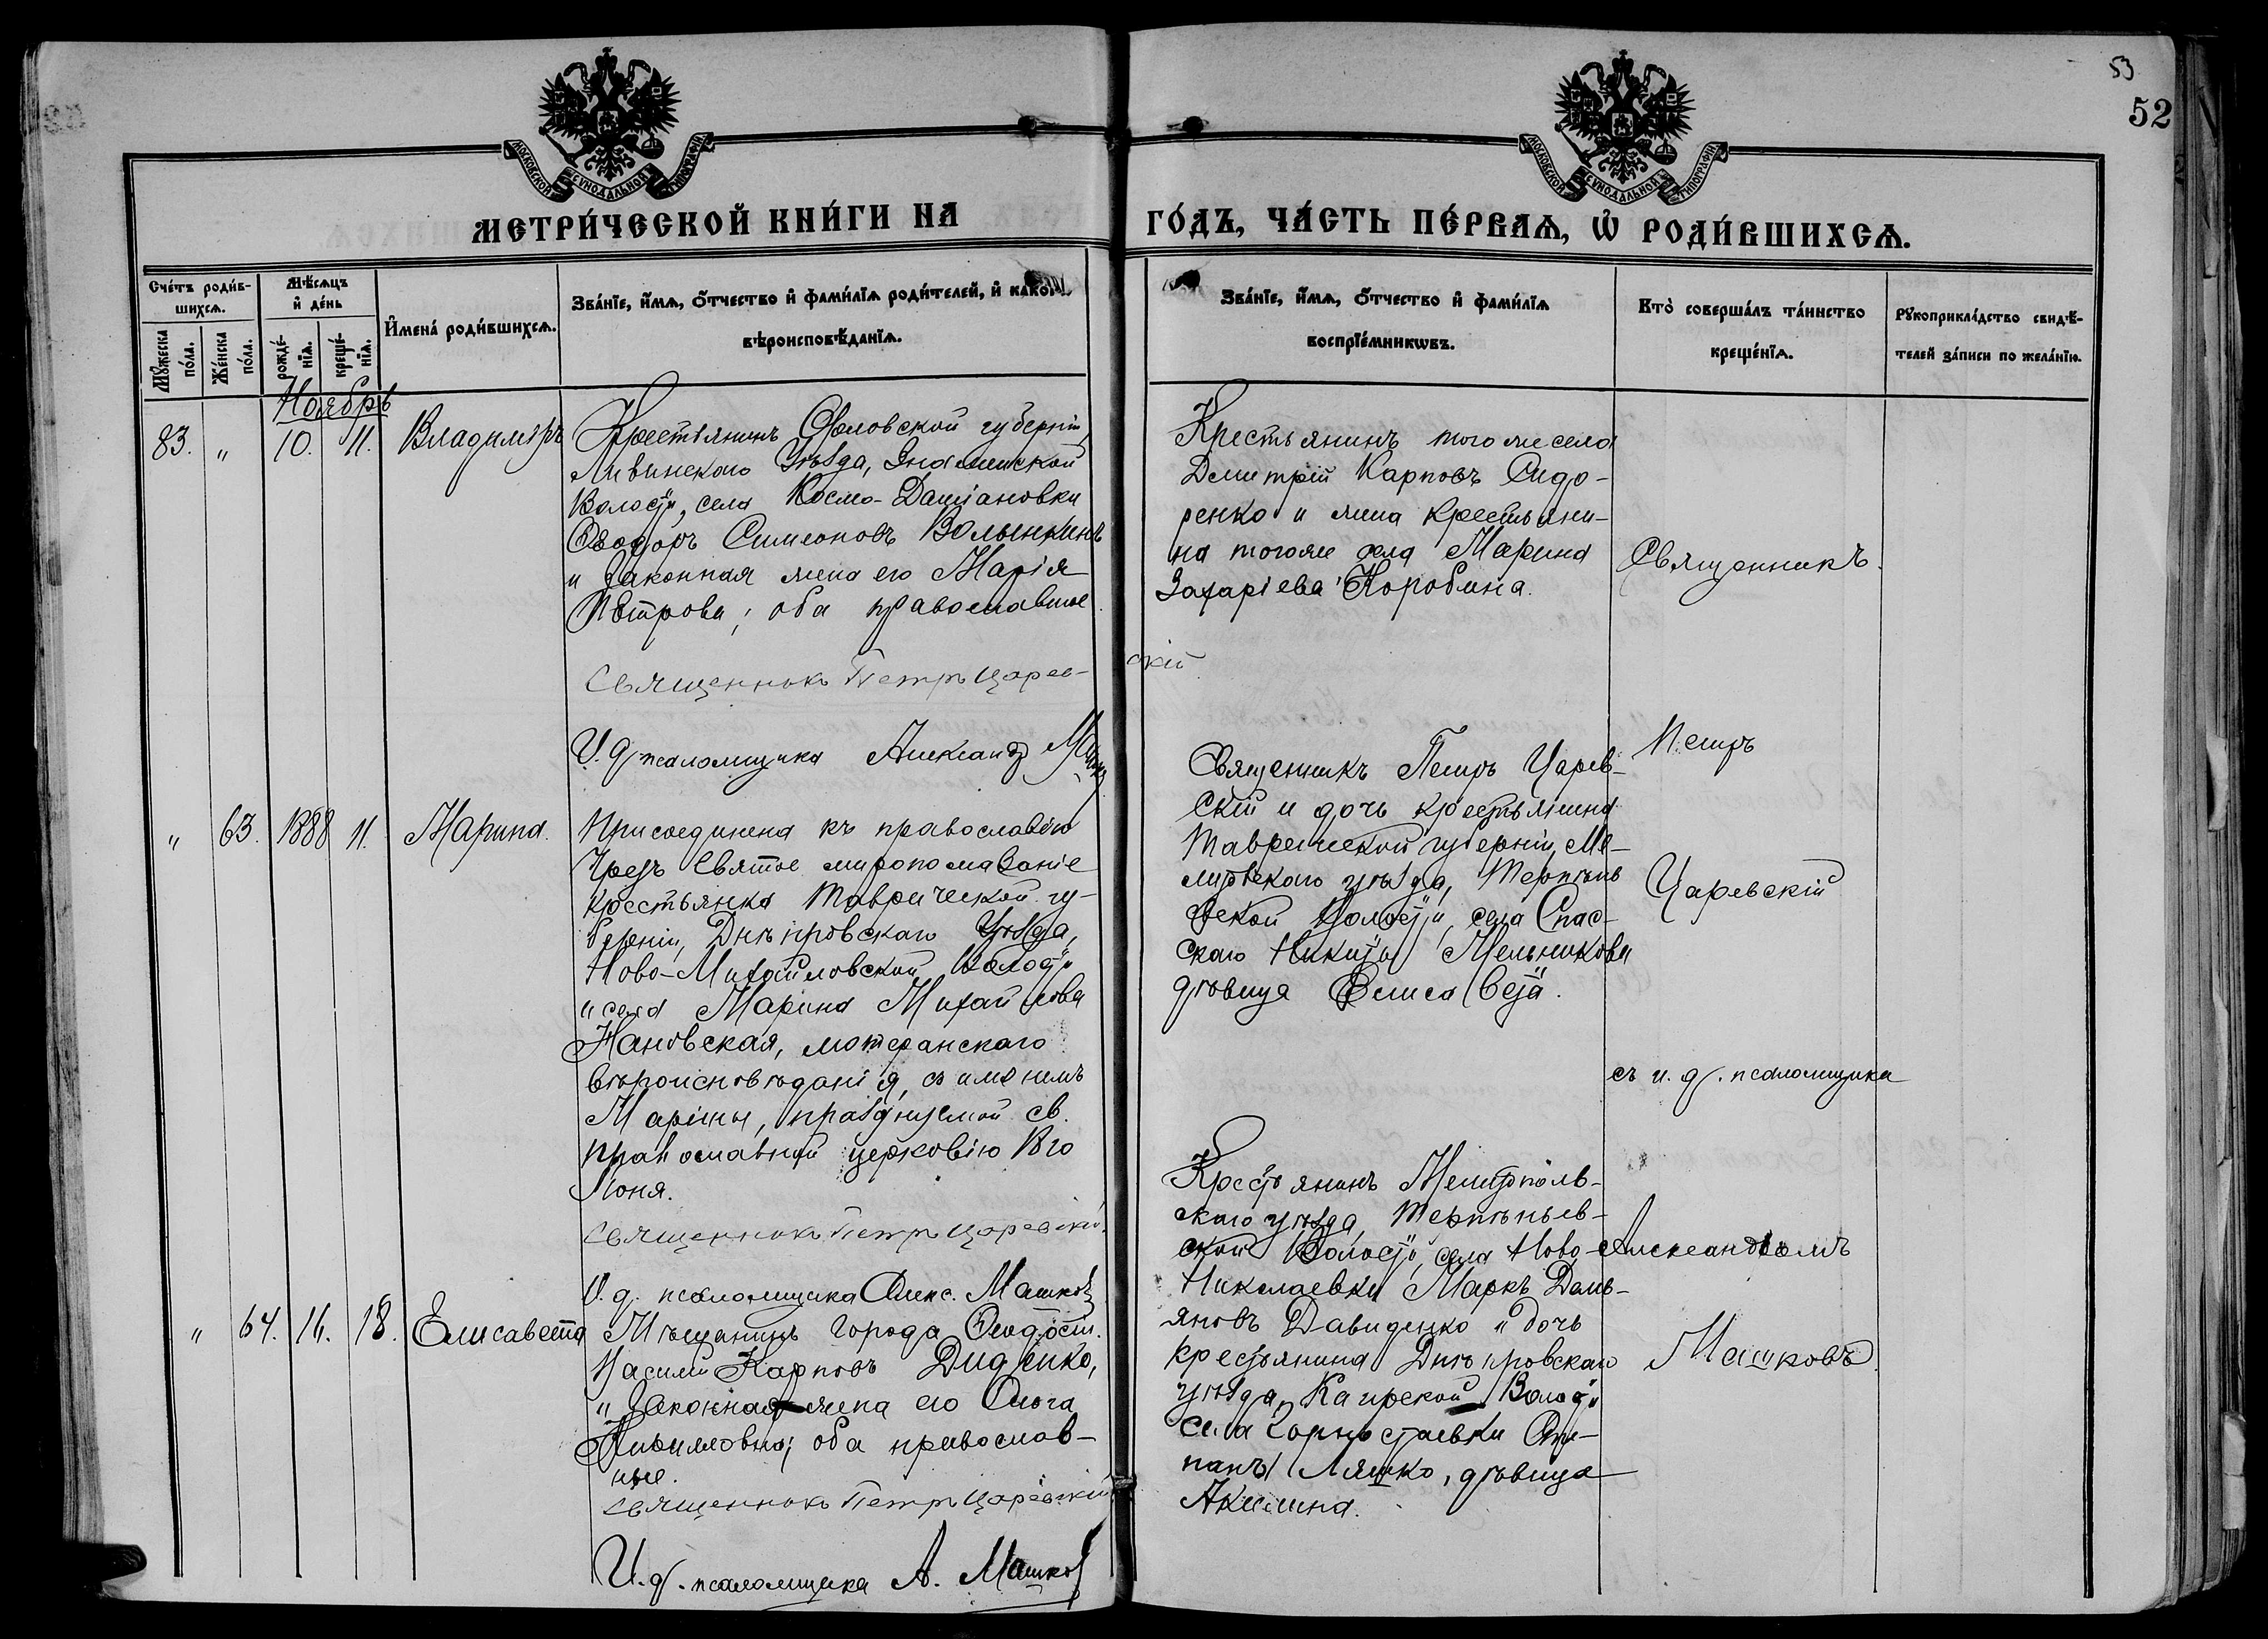 53
52
МОСКОВСКОЙ СѴНОДАЛЬНОЙ ТИПОГРАФІИ
МОСКОВСКОЙ СѴНОДАЛЬНОЙ ТИПОГРАФІИ
МЕТРИ́ЧЕСКОЙ КНИ́ГИ НА
ГО́ДЪ, ЧА́СТЬ ПЕ́РВАѦ, Ѡ҆ РОДИ́ВШИХСѦ.
Сче́тъ роди́в-
шихсѧ.
Мꙋ́жеска
по́ла.
Же́нска
по́ла.
Мѣ́сѧцъ
и҆ де́нь
рожде́-
нїѧ.
креще́-
нїѧ.
И҆мена̀ роди́вшихсѧ.
Зва́нїе, и҆́мѧ, ѻ҆́тчество и҆ фами́лїѧ роди́телей, и҆ како-
вѣроисповѣ́данїѧ.
Зва́нїе, и҆́мѧ, ѻ҆́тчество и҆ фами́лїѧ
воспрїе́мникѡвъ.
Кто̀ соверша́лъ та́инство
креще́нїѧ.
Рꙋкоприкла́дство свидѣ́-
телей за́писи по жела́нїю.
Ноябрь
83. " 10. 11. Владиміръ
Крестьянинъ Орловской губерніи,
Ливинскаго Уѣзда, Знаменской
Волости, села Космо-Даміановки
Ѳеодоръ Симеоновъ Волынкинъ
и Законная жена его Марія
Петрова; оба православные.
Священникъ Петръ Царев-
скій
И. д. псаломщика Александ
Крестьянинъ того же села
Димитрій Карповъ Сидо-
ренко и жена крестьяни-
на тогоже села Марина
Захаріева Коробина.
Священникъ
" 63. 1888 11. Марина.
Присоединена къ православію
Чрезъ Святое миропомазаніе
крестьянка Таврической гу-
берніи, Днѣпровскаго Уѣзда,
Ново-Михайловской Волости
и села Марина Михайлова
Яновская, лютеранскаго
вѣроисповѣданія, съ именемъ
Марины, празднуемой св.
православной церковію 18го
Іюня.
Священникъ Петръ Царевскій.
И. д. псаломщика Алекс. Машковъ
Священникъ Петръ Царев-
скій и дочь крестьянина
Таврической губерніи, Ме-
литовскаго уѣзда, Терпѣнь
евской Волости, села Спас-
скаго Никиты Мельникова
дѣвица Елисавета.
Петръ
Царевскій
съ и. д. псаломщика
" 64. 16. 18. Елисавета
Мѣщанинъ города Ѳеодосіи.
Василій Карповъ Диденко,
и Законная жена его Ольга
оба православ-
ные.
Священникъ Петръ Царевскій
И. д. псаломщика А. Машков
Крестьянинъ Мелитополь-
скаго уѣзда, Терпѣньев-
ской Волости, села Ново-
Николаевки Маркъ Демь-
яновъ Давиденко и дочь
крестьянина Днѣпровскаго
уѣзда, Каирской Волости
села Горностаевки Сте-
пана Ляшко, дѣвица
Акилина.
Александромъ
Машковъ.